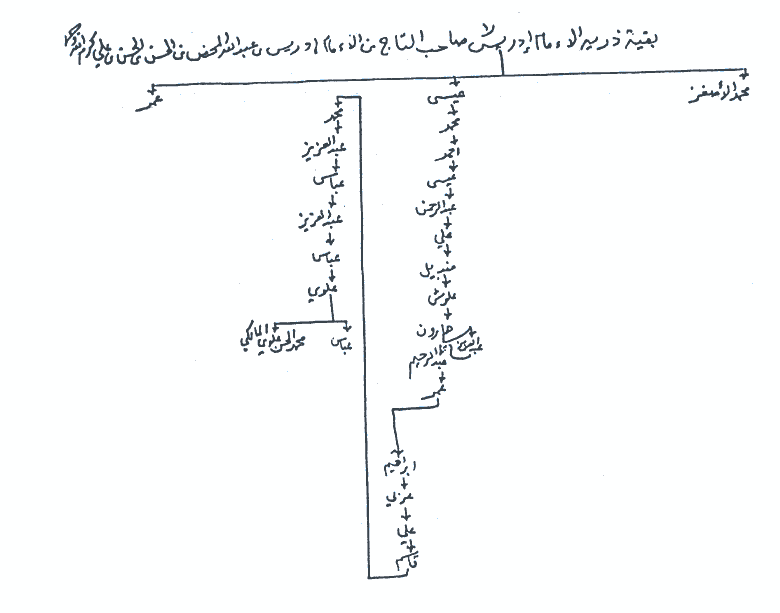 بقية ذرية الاءمام إدريس صاحب التاج بن الاءمام ادريس بن عبدالله المحض بن الحسن بن الحسن بن علي كرم الله وجهه
محمد الأصغر
عيسى
عمر
محمد
احمد
عيسى
عبدالرحمن
علي
منديل
علوش
هارون
عبدالرحيم
عمر
ابراهيم
عزبي
علي
قاسم
محمد
عبدالعزيز
عباس
عبدالعزيز
عباس
علوي
عباس
محمد الحسن علوي المالكي